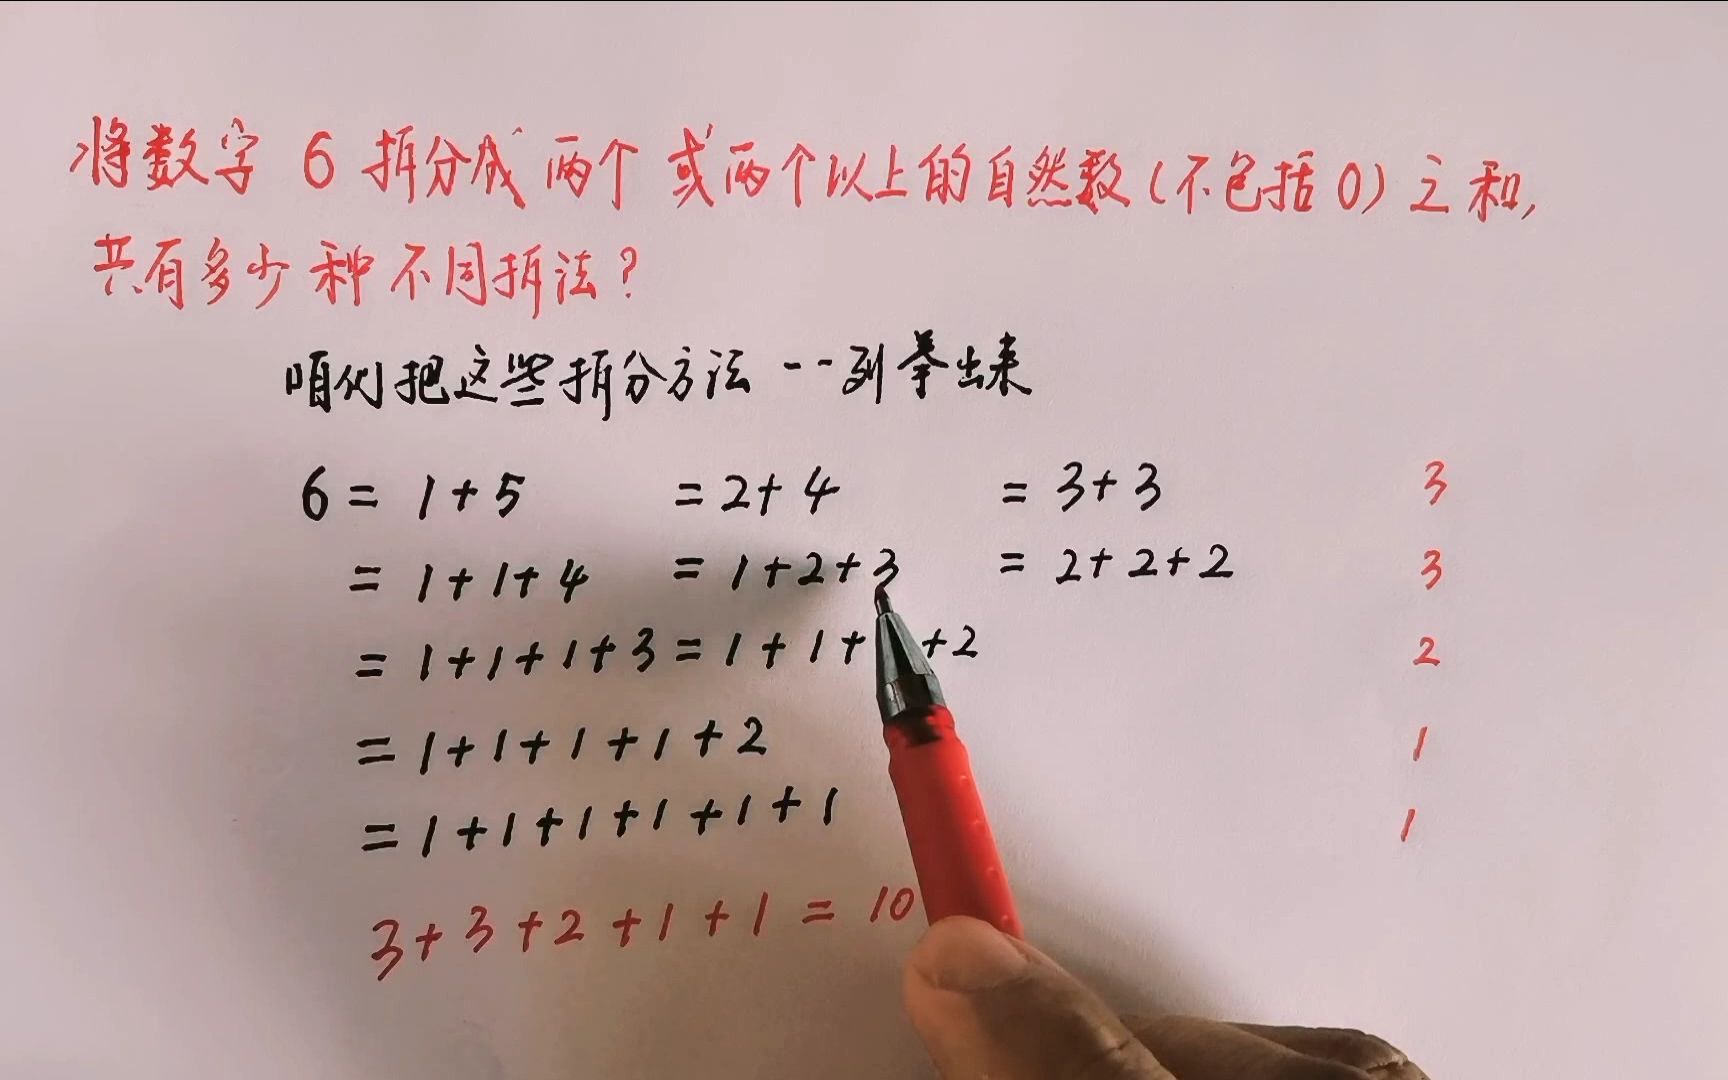 将数字 6 拆分成两个或两个以上的自然数(不包括0)之和,
共有多少种不同拆法?
咱们把这些拆分方法一一列举出来
6 = 1+5 = 2+4 = 3+3 3
= 1+1+4 = 1+2+3 = 2+2+2 3
= 1+1+1+3 = 1+1+ +2 2
= 1+1+1+1+2 1
= 1+1+1+1+1+1 1
3+3+2+1+1=10